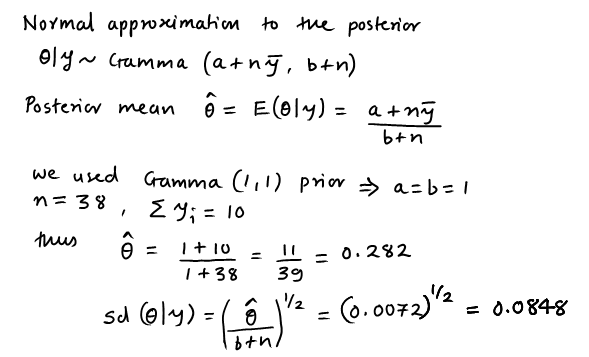 Normal approximation to the posterior
θ|y ~ Gamma (a+nȳ, b+n)
Posterior mean θ̂ = E(θ|y) = (a+nȳ)/(b+n)
we used Gamma (1,1) prior ⇒ a=b=1
n=38, Σ yᵢ = 10
thus θ̂ = (1+10)/(1+38) = 11/39 = 0.282
sd (θ|y) = (θ̂/(b+n))^1/2 = (0.0072)^1/2 = 0.0848